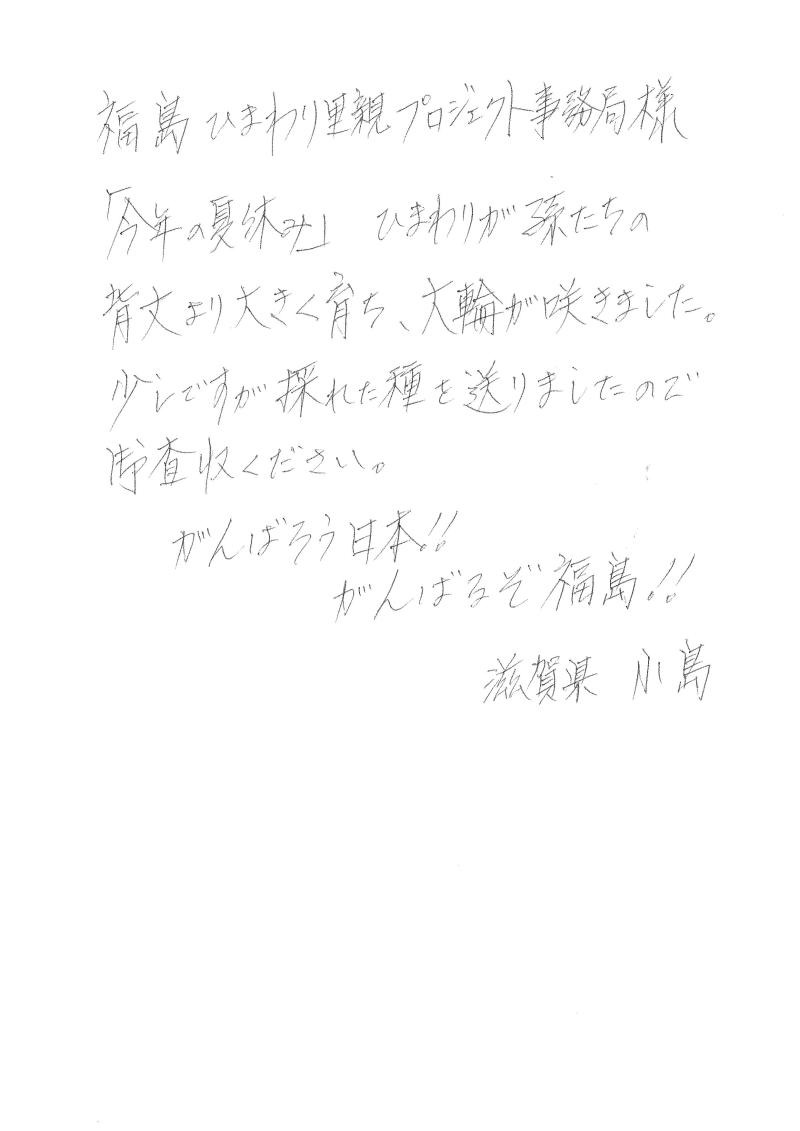 福島ひまわり里親プロジェクト事務局様
「今年の夏休み」 ひまわりが孫たちの
背丈より大きく育ち、大輪が咲きました。
少しですが採れた種を送りましたので
御査収ください。
がんばろう日本!!
がんばるぞ福島!!
滋賀県 小島